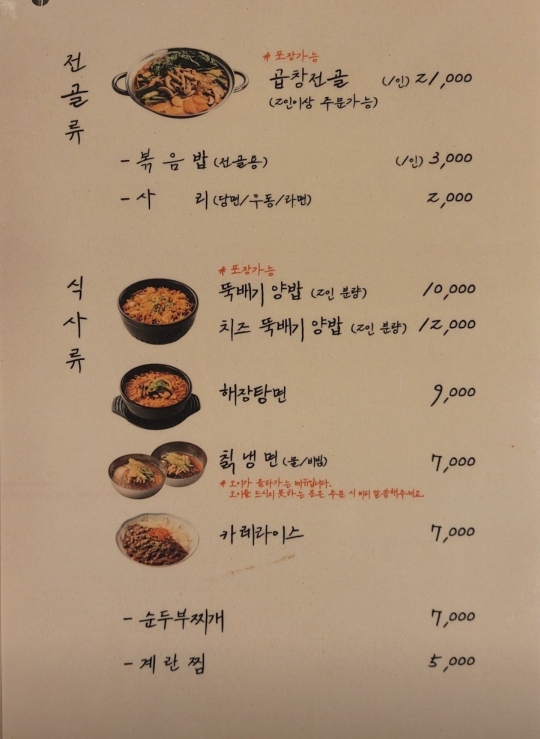 전골류
# 포장가능
곱창전골 (1인) 21,000
(2인이상 주문가능)
- 볶음밥 (전골용) (1인) 3,000
- 사 리 (당면/우동/라면) 2,000
식사류
# 포장가능
뚝배기 양밥 (2인 분량) 10,000
치즈 뚝배기 양밥 (2인 분량) 12,000
해장탕면 9,000
칡냉면 (물/비빔) 7,000
# 오이가 들어가는 메뉴입니다.
오이를 드시지 못하는 분은 주문 시 미리 말씀해주세요.
카레라이스 7,000
- 순두부찌개 7,000
- 계란찜 5,000